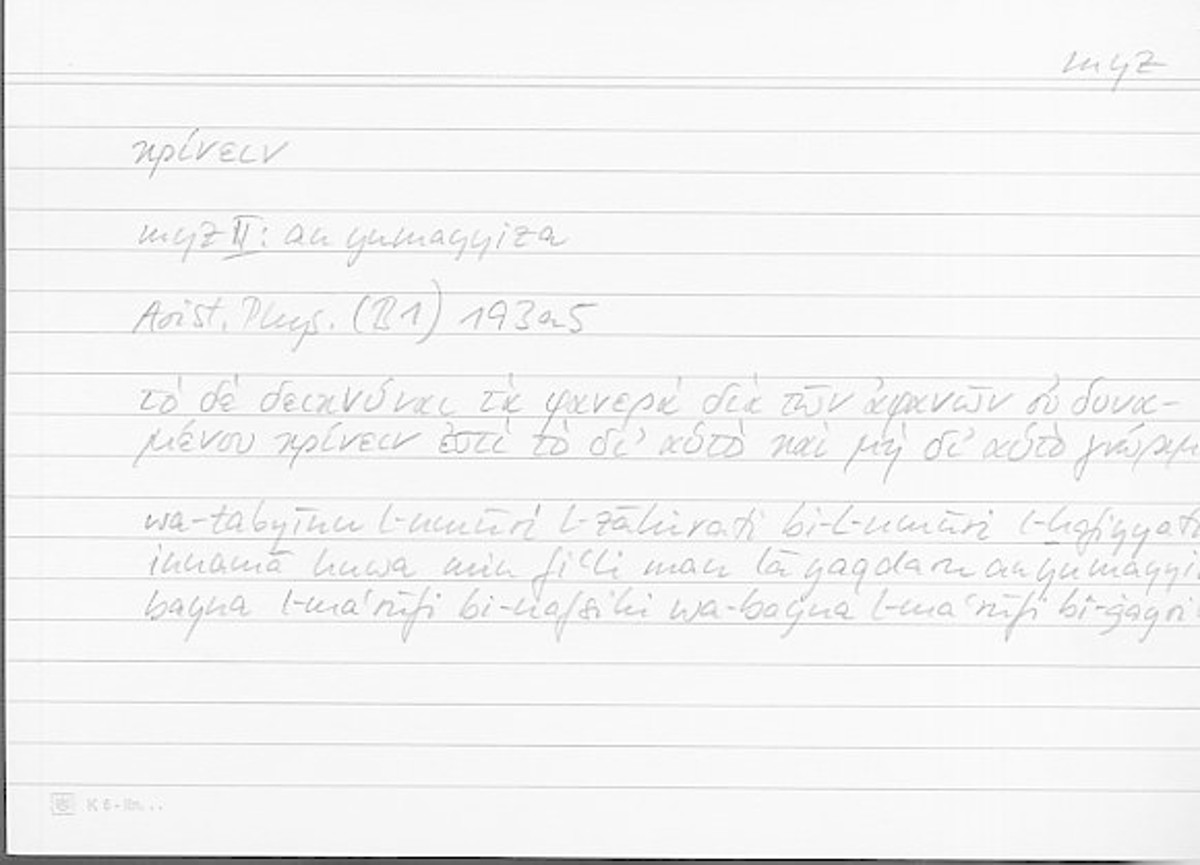 myz
κρίνειν
myz II: an yumayyiza
Arist. Phys. (B1) 193a5
τὸ δὲ δεικνύναι τὰ φανερὰ διὰ τῶν ἀφανῶν οὐ δυνα-
μένου κρίνειν ἐστὶ τὸ δι' αὑτὸ καὶ μὴ δι' αὑτὸ γνώριμ
wa-tabyīnu l-umūri l-ẓāhirati bi-l-umūri l-ḫafiyyati
innamā huwa min fiʿli man lā yaqdaru an yumayyi
bayna l-maʿrūfi bi-nafsihi wa-bayna l-maʿrūfi bi-ġayri